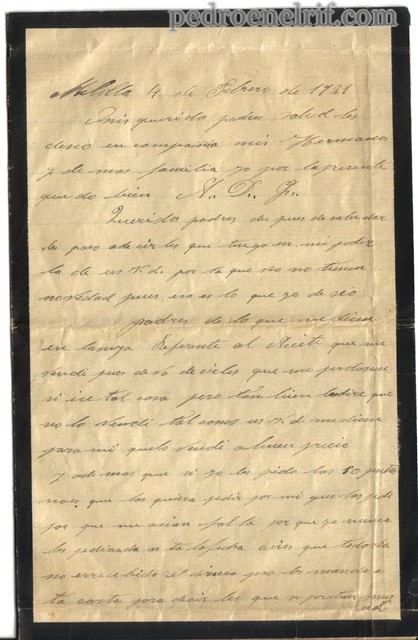 pedroenelrif.com
Melilla 4 de Febrero de 1921
Mis querido padres salud les
deseo en compañia mis Hermanos
y demas familia yo por la presente
quedo bien A. D. G.
Queridos padres despues de saludar
les paso adecirles que tengo en mi poder
la de us V.d. por la que veo no tienen
novedad pues en es lo que yo deseo
padres de lo que me dicen
en la suya Referente al Aceite que
vendi pues debo decirles que me perdonen
si ice tal cosa pero tan bien les dire que
no lo vendi tal como us V.d me dicen
para mi que lo vendi a buen precio
y ademas que si yo les pido las 10 pesetas
no es que las quiera pedir por mi gues las pedi
por que me acian falta por que yo nunca
les pedi nada asta la fecha asies que todavia
no erecebido el dinero pero les mando es
ta carta para decir les que si